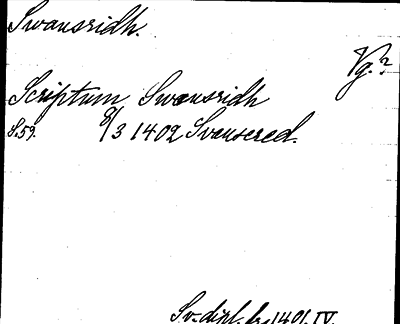 Swansridh.
Vg.?
Scriptum Swansridh
S.59. 8/3 1402 Svensered.
Sv. dipl. fr. 1401. IV.